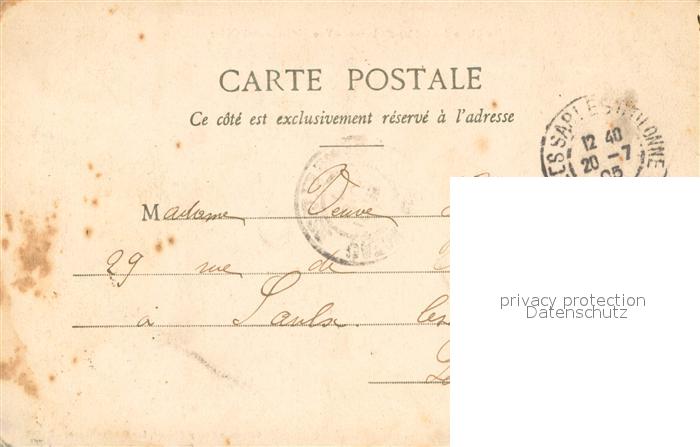 CARTE POSTALE
Ce côté est exclusivement réservé à l'adresse
LES SABLES D'OLONNE
12 40
20 -7
05
Madame Veuve
29 rue de
à Saulx les
privacy protection
Datenschutz